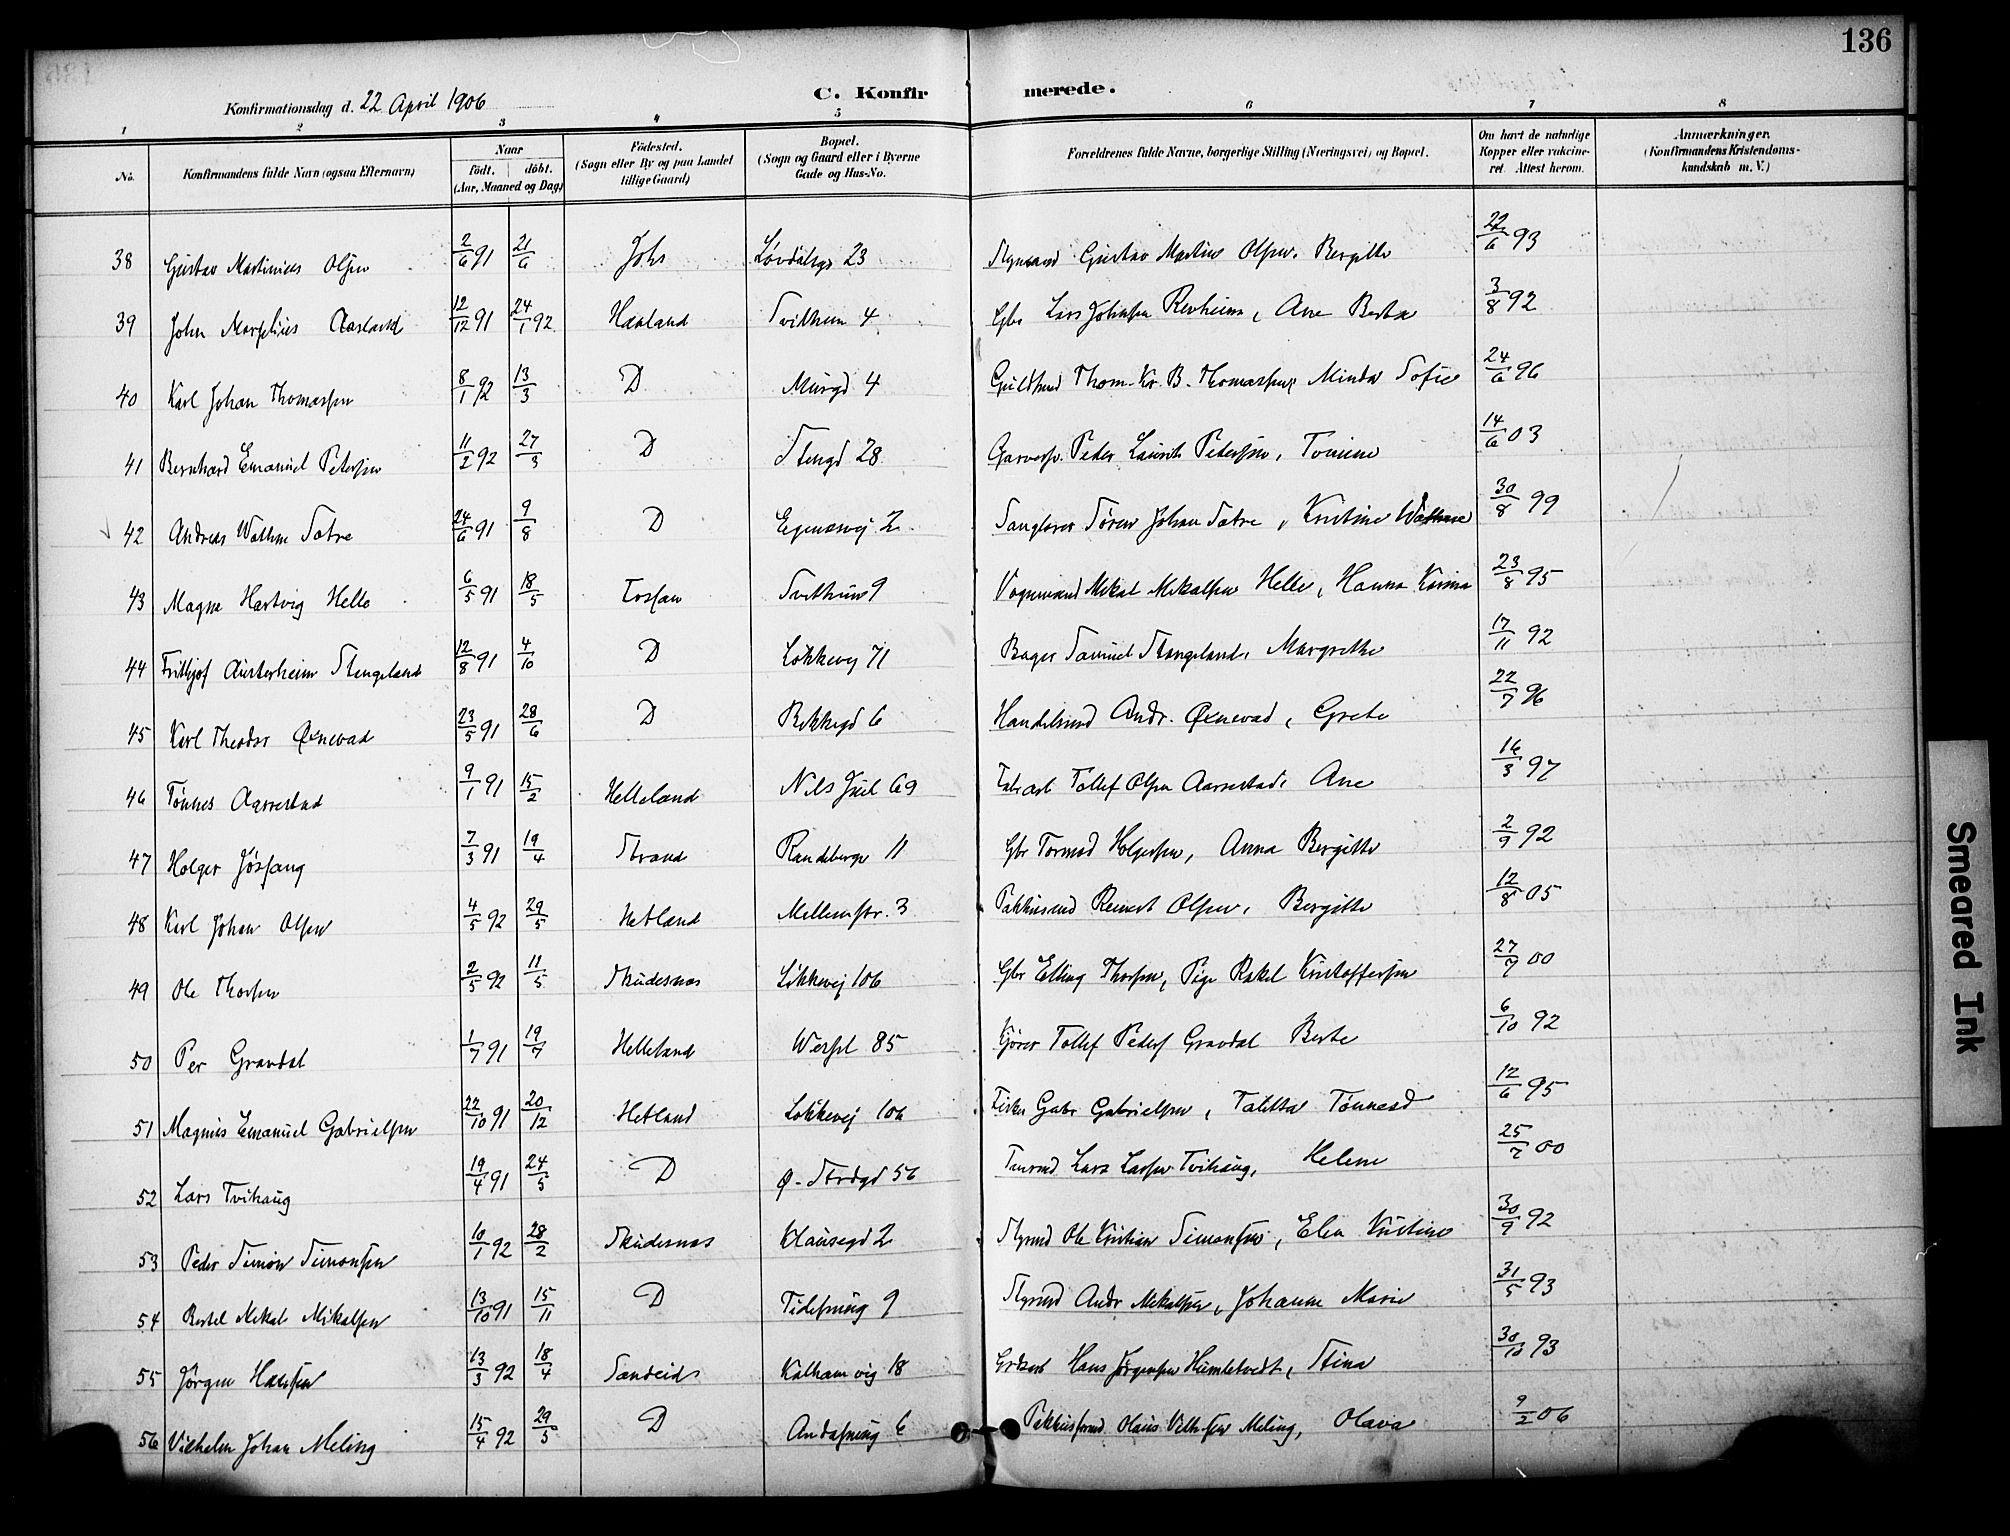 136
Konfirmationsdag d. 22 April 1906
C. Konfirmerede.
1 2 3 4 5 6 7 8
No. Konfirmandens fulde Navn (ogsaa Efternavn) Naar födt. döbt. (Aar, Maaned og Dag) Födested. (Sogn eller By og paa Landet tillige Gaard) Bopæl. (Sogn og Gaard eller i Byerne Gade og Hus-No. Forældrenes fulde Navne, borgerlige Stilling (Næringsvei) og Bopæl. Om havt de naturlige Kopper eller vakcineret Attest herom. Anmærkninger. (Konfirmandens Kristendomskundskab m. V.)
38 Gustav Martinius Olsen 2/6 91 21/6 Johs Løvdalsgt 23 Gustav Martin Olsen, Bergitte 22/6 93
39 John Aasland 12/12 91 24/1 92 Haaland Svithun 4 Gbr Lars Johnsen Revheim, Ane Berta 3/8 92
40 Karl Johan Thomassen 8/1 92 13/3 D Murgd 4 Thom. Kr. B. Thomassen, Minda Sofie 24/6 96
41 Bernhard Emanuel Petersen 11/2 92 27/3 D Stengd 28 Peder Laurits Petersen, Tomine 14/6 03
42 Andreas Wathne Sætre 24/6 91 9/8 D Egenesvej 2 Sanglærer Sören Johan Sætre, Kristine Wathne 30/8 99
43 Magne Hartvig Helle 6/5 91 18/5 Fossan Svithun 9 Vognmand Mikal Mikalsen Helle, Hanna Karina 23/8 95
44 Frithjof Austerheim Stangeland 12/8 91 4/10 D Løkkevej 71 Bager Samuel Stangeland, Margrethe 17/11 92
45 Karl Theodor Øxnevad 23/5 91 28/6 D Bekkegd 6 Handelsmd Andr. Øxnevad, Grete 22/7 96
46 Tönnes Aarrestad 9/1 91 15/2 Helleland Nils Juel 69 Fabr.arb Tollef Olsen Aarrestad, Ane 16/3 97
47 Holger Jøssang 7/3 91 19/4 Strand Randeberge 11 Gbr Tormod Holgersen, Anna Bergitte 2/9 92
48 Karl Johan Olsen 4/5 92 29/5 Hetland Mellemstr. 3 Reinert Olsen, Bergitte 12/8 05
49 Ole Thorsen 2/5 92 11/5 Skudesnæs Løkkevej 106 Gbr Elling Thorsen, Pige Rakel Kristoffersen 27/7 00
50 Per Gravdal 1/7 91 19/7 Helleland 85 Kjører Tollef Peders Gravdal Berte 6/10 92
51 Magnus Emanuel Gabrielsen 22/10 91 20/12 Hetland Løkkevej 106 Fisker Gabr Gabrielsen, Talitta Tönnesd 12/6 95
52 Lars Tvihaug 19/4 91 24/5 D Ø. Strdgd 56 Lars Larsen Tvihaug, Helene 25/7 00
53 Peder Simon Simonsen 10/1 92 28/2 Skudesnæs Klausegd 2 Styrmd Ole Kristian Simonsen, Elen Kristine 30/9 92
54 Bertel Mikal Mikalsen 13/10 91 15/11 D Tidesmug 9 Styrmd Andr Mikalsen, Johanne Marie 31/5 93
55 Jörgen Hansen 13/3 92 18/4 Sandeid Kalhamvig 18 Hans Jörgensen Humletvedt, Stina 30/10 93
56 Vilhelm Johan Meling 15/4 92 29/5 D Andasmug 6 Pakhusformd Olaus Vilh.sen Meling, Olava 9/2 06
Smeared Ink